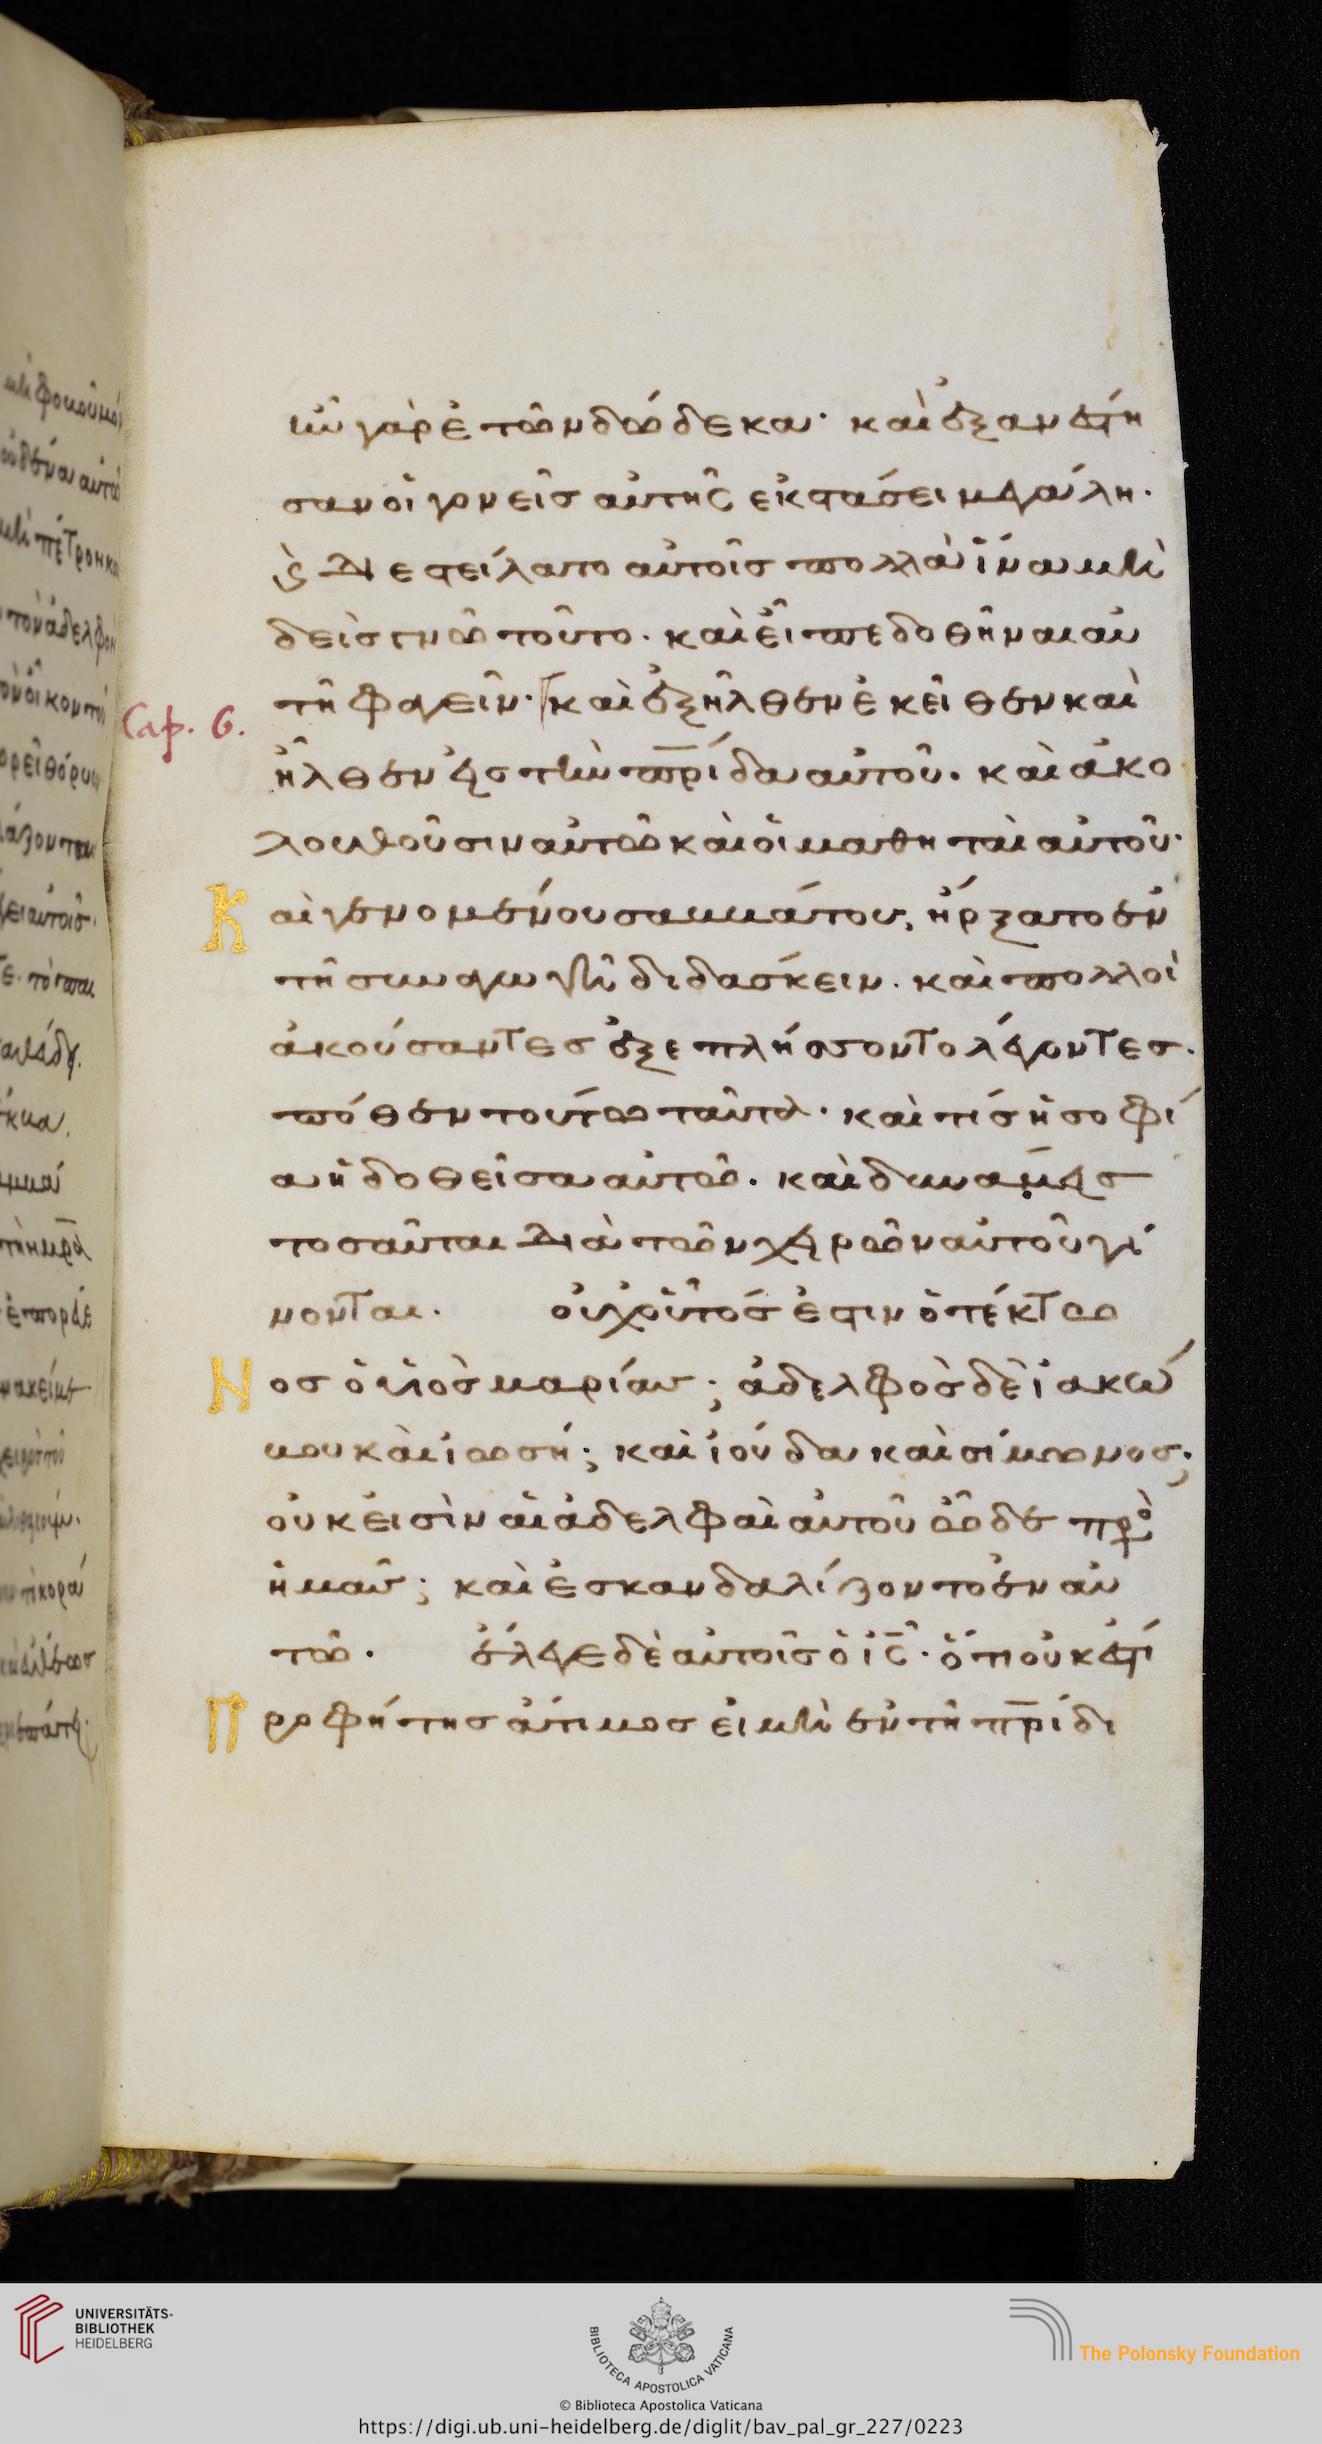 ἦν γὰρ ἐτῶν δώδεκα· καὶ ἐξανέστη
σαν οἱ γονεῖς αὐτῆς ἐκστάσει μεγάλη.
καὶ διεστείλατο αὐτοῖς πολλὰ ἵνα μη
δεὶς γνῶ τοῦτο. καὶ εἶπε δοθῆναι αὐ
τῆ φαγεῖν. καὶ ἐξῆλθεν ἐκεῖθεν καὶ
Cap. 6.
ἦλθεν εἰς τὴν πρίδα αὐτοῦ. καὶ ἀκο
λουθοῦσιν αὐτῶ καὶ οἱ μαθηταὶ αὐτοῦ·
Καὶ γενομένου σαββάτου, ἤρξατο ἐν
τῆ συναγωγῆ διδάσκειν. καὶ πολλοὶ
ἀκούσαντες ἐξεπλήσσοντο λέγοντες.
πόθεν τούτω ταῦτα· καὶ τίς ἡ σοφί
α ἡ δοθεῖσα αὐτῶ. καὶ δυνάμεις
τοσαῦται διὰ τῶν χειρῶν αὐτοῦ γί
νονται. οὐχ οὗτός ἐστιν ὁ τέκτω
Νος ὁ υἱὸς μαρίας; ἀδελφὸς δὲ ἰακώ
βου καὶ ἰωσή; καὶ ἰούδα καὶ σίμωνος;
οὐκ εἰσὶν αἱ ἀδελφαὶ αὐτοῦ ὧδε πρὸς
ἡμᾶς; καὶ ἐσκανδαλίζοντο ἐν αὐ
τῶ. ἔλεγε δὲ αὐτοῖς ὁ ις· ὅτι οὐκ ἔστι
Προφήτης ἄτιμος εἰ μὴ ἐν τῆ πρίδι
UNIVERSITÄTS-
BIBLIOTHEK
HEIDELBERG
BIBLIOTECA APOSTOLICA VATICANA
The Polonsky Foundation
© Biblioteca Apostolica Vaticana
https://digi.ub.uni-heidelberg.de/diglit/bav_pal_gr_227/0223